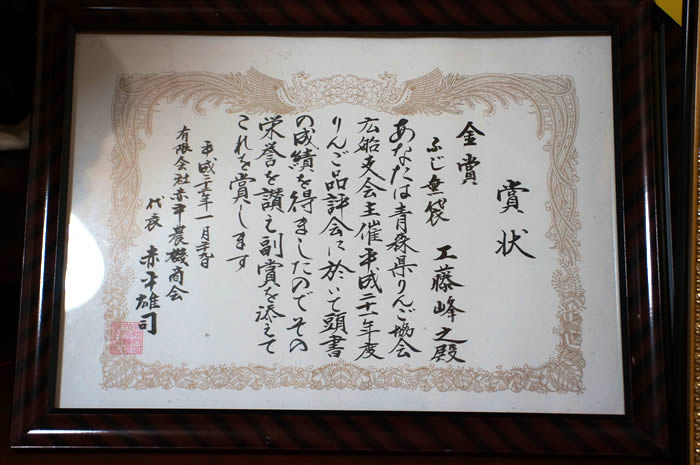 賞状
金賞
ふじ無袋 工藤峰之殿
あなたは青森県りんご協会
広船支会主催平成二十一年度
りんご品評会に於いて頭書
の成績を得ましたのでその
栄誉を讃え副賞を添えて
これを賞します
平成二十二年一月二十九日
有限会社赤平農機商会
代表 赤平雄司